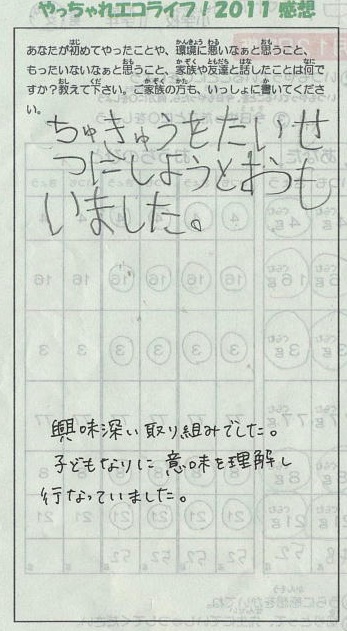 やっちゃれエコライフ！2011 感想
あなたが初めてやったことや、環境に悪いなぁと思うこと、
もったいないなぁと思うこと、家族や友達と話したことは何で
すか？教えて下さい。ご家族の方も、いっしょに書いてくださ
い。
ちゅきゅうをたいせ
つにしようとおうも
いました。
興味深い取り組みでした。
子どもなりに意味を理解し
行なっていました。